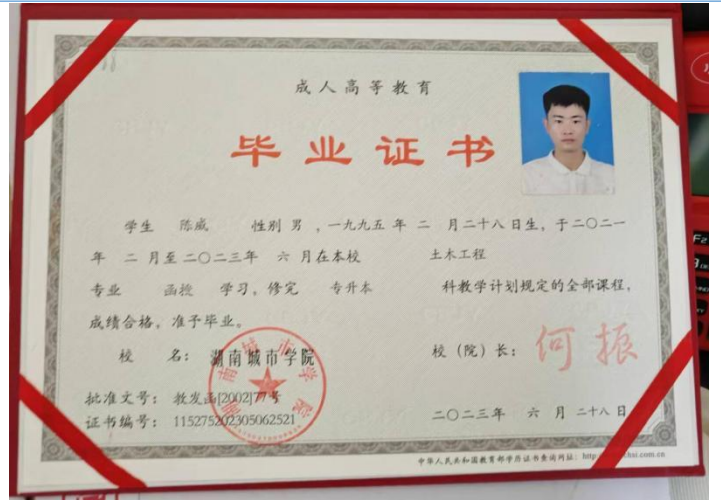 成人高等教育
毕业证书
学生 陈威 性别 男 ，一九九五 年 二 月二十八日生，于二〇二一
年 二 月至二〇二三年 六 月在本校 土木工程
专业 函授 学习，修完 专升本 科教学计划规定的全部课程，
成绩合格，准予毕业。
校 名： 湖南城市学院
校（院）长： 何振
批准文号： 教发函[2002]77号
证书编号： 115275202305062521
二〇二三年 六 月 二十八日
中华人民共和国教育部学历证书查询网址： http chsi.com.cn
湖南城市学院